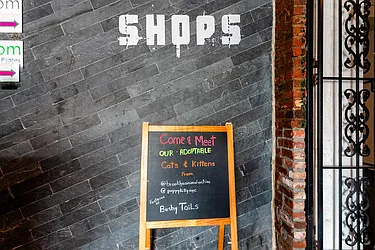 om
om
SHOPS
Come & Meet
OUR ADOPTABLE
Cats & Kittens
From
Bushy Tails